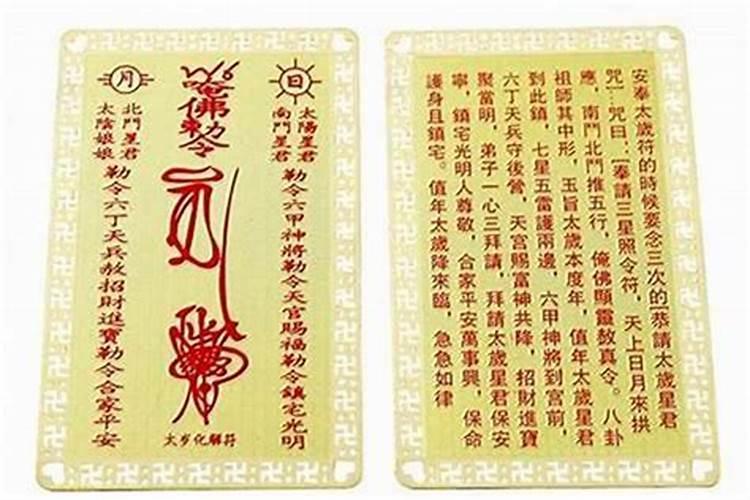 日
太陽星君
南鬥星君
勒令六甲神將勒令天官賜福勒令鎮宅光明
唵佛勅令
太岁化解符
月
北鬥星君
太陰娘娘
勒令六丁天兵赦招財進寶勒令合家平安
安奉太歲符的時候要念三次的[恭請太歲星君
咒一.咒曰:[奉請三星照令符,天上日月來拱
應,南鬥北鬥推五行,俺佛顯靈敖真令。八卦
祖師其中形,玉旨太歲本度年,值年太歲星君
到此鎮,七星五雷護兩邊,六甲神將到宮前,
六丁天兵守後營,天宮賜富神共降,招財進寶
聚當明,弟子一心三拜請,拜請太歲星君保安
寧,鎮宅光明人尊敬,合家平安萬事興,保命
護身且鎮宅。值年太歲降來臨,急急如律